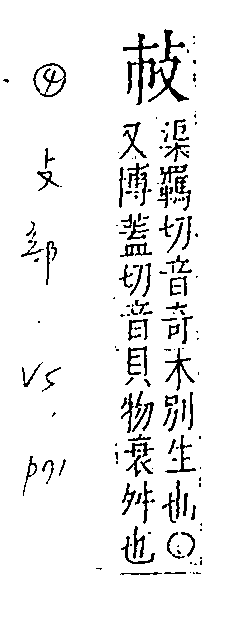 渠羈切音奇木別生也〇
又博蓋切音貝物衰舛也
④ 支部 · V5, p71